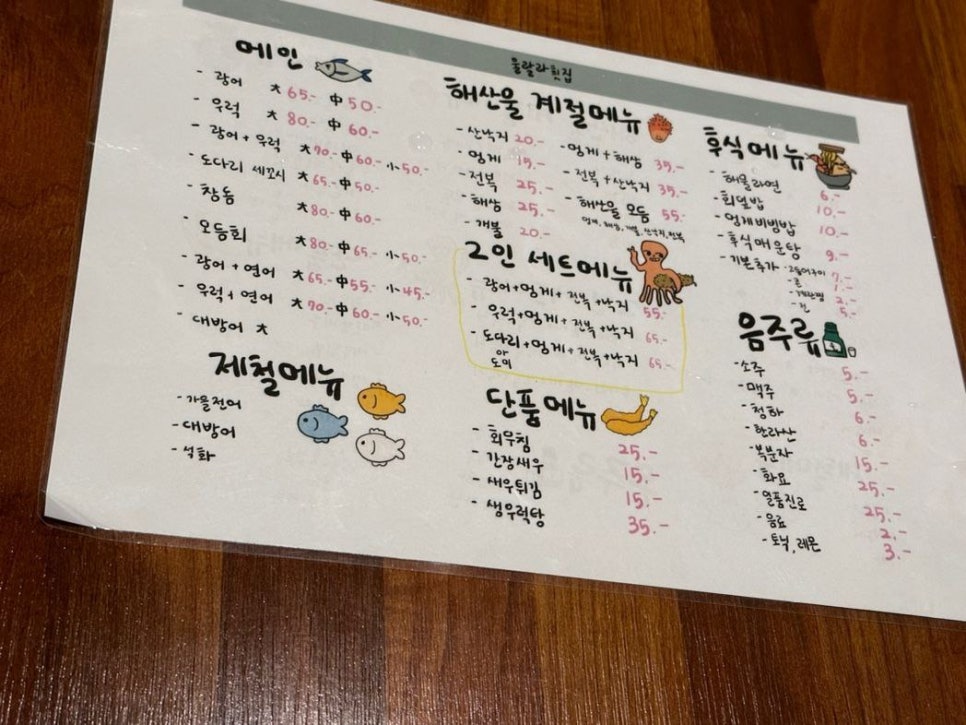 울랄라횟집
메인
- 광어 大 65.- 中 50.-
- 우럭 大 80.- 中 60.-
- 광어 + 우럭 大 70.- 中 60.- 小 50.-
- 도다리 세꼬시 大 65.- 中 50.-
- 참돔 大 80.- 中 60.-
모듬회 大 80.- 中 65.- 小 50.-
- 광어 + 연어 大 65.- 中 55.- 小 45.-
- 우럭 + 연어 大 70.- 中 60.- 小 50.-
- 대방어 大
제철메뉴
- 가을전어
- 대방어
- 석화
해산물 계절메뉴
- 산낙지 20.-
- 멍게 15.-
- 전복 25.-
- 해삼 25.-
- 개불 20.-
- 멍게 + 해삼 35.-
- 전복 + 산낙지 35.-
- 해산물 모듬 55.-
멍게, 해삼, 개불, 산낙지, 전복
2인 세트메뉴
- 광어+멍게+전복+낙지 55.-
- 우럭+멍게+전복+낙지 65.-
- 도다리+멍게+전복+낙지 65.-
or
도미
단품메뉴
- 회무침 25.-
- 간장새우 15.-
- 새우튀김 15.-
- 생우럭탕 35.-
후식메뉴
- 해물라면 6.-
- 회덮밥 10.-
- 멍게비빔밥 10.-
- 후식매운탕 9.-
- 기본추가 - 고등어구이 7.-
- 콘 1.-
- 계란찜 2.-
- 전 5.-
음주류
- 소주 5.-
- 맥주 5.-
- 청하 6.-
- 한라산 6.-
- 복분자 15.-
- 화요 25.-
- 일품진로 25.-
- 음료 2.-
- 토닉, 레몬 3.-